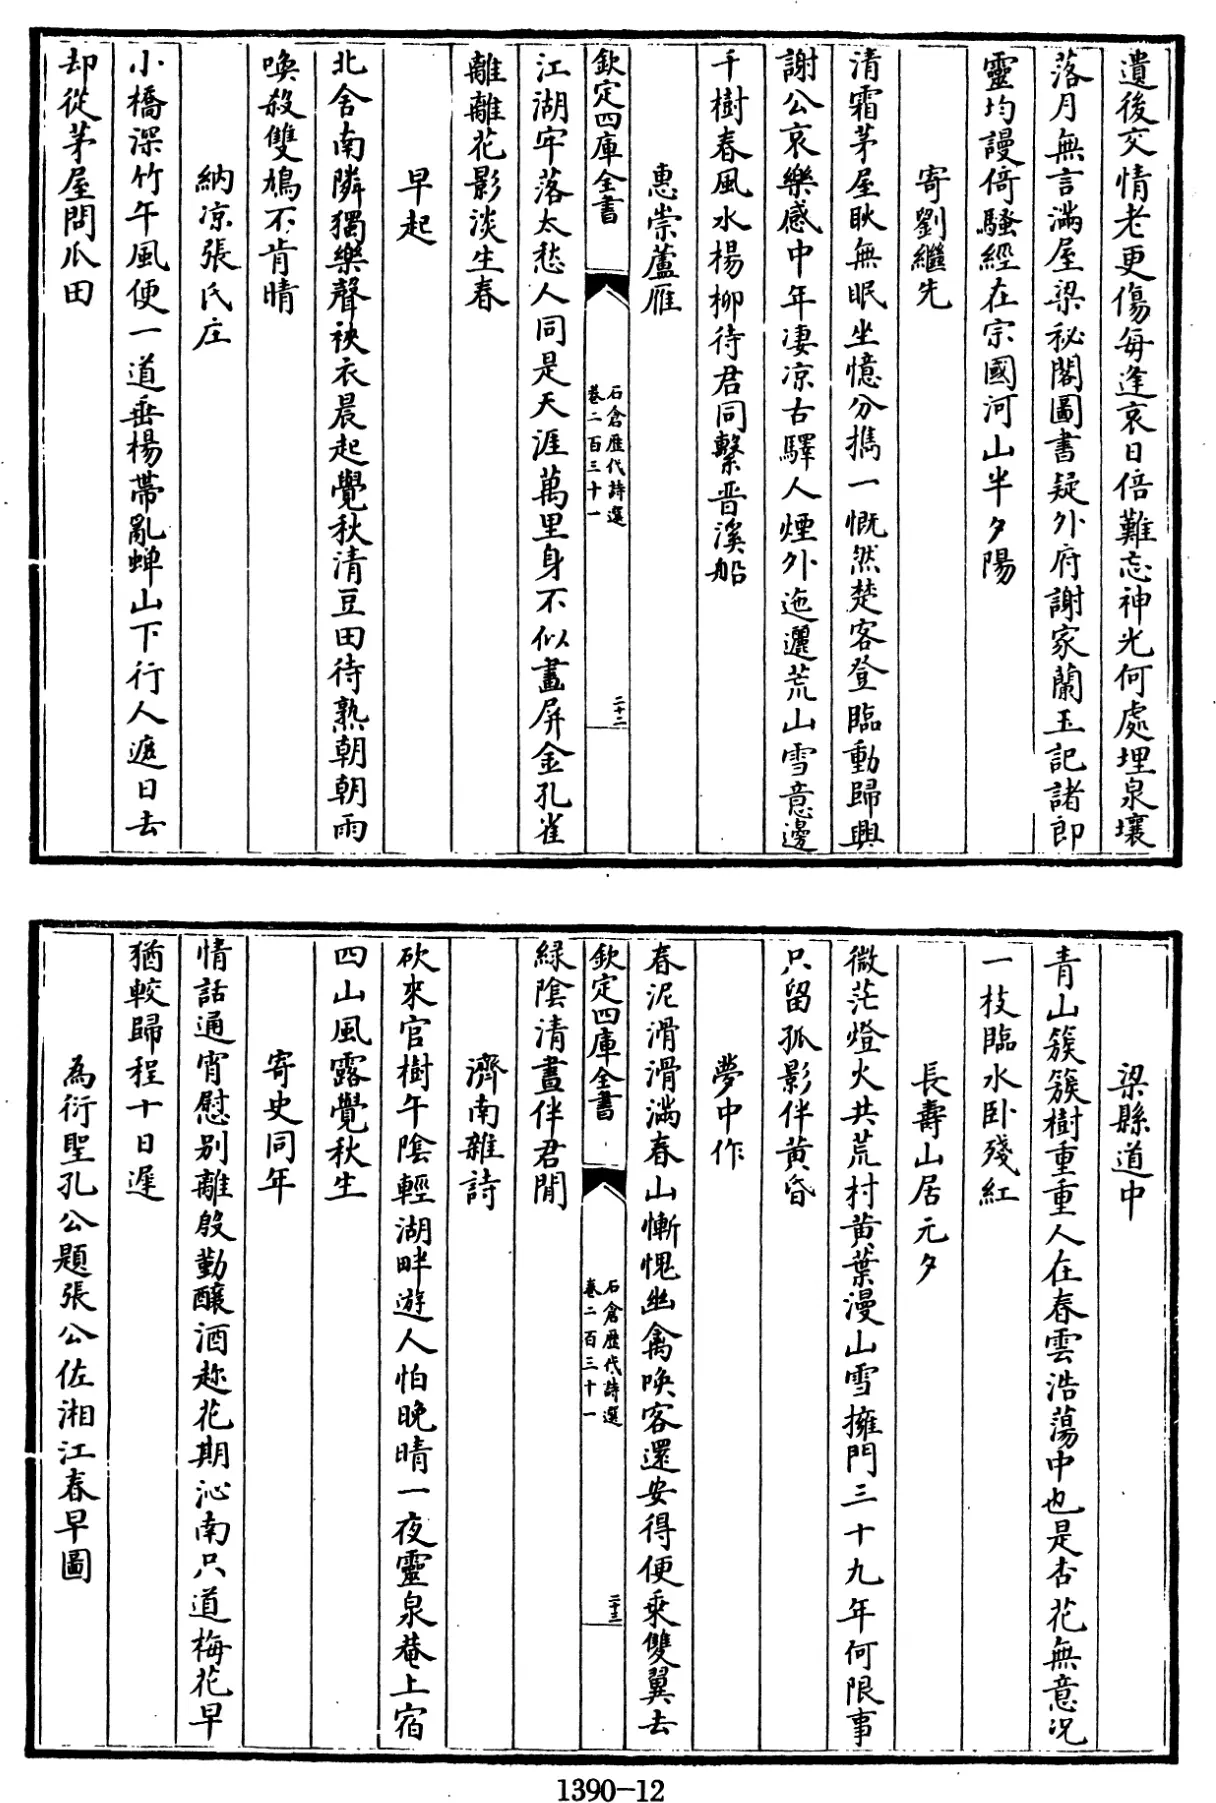 遺後交情老更傷每逢哀日倍難忘神光何處埋泉壤
落月無言滿屋梁秘閣圖書疑外府謝家蘭玉記諸郎
靈均謾倚騷經在宗國河山半夕陽
寄劉繼先
清霜茅屋耿無眠坐憶分携一慨然楚客登臨動歸興
謝公哀樂感中年凄凉古驛人煙外迤邐荒山雪意邊
千樹春風水楊柳待君同繫晉溪船
惠崇蘆雁
欽定四庫全書
石倉歷代詩選
卷二百三十一
二十二
江湖牢落太愁人同是天涯萬里身不似畫屏金孔雀
離離花影淡生春
早起
北舍南隣獨樂聲裌衣晨起覺秋清豆田待熟朝朝雨
喚殺雙鳩不肯晴
納凉張氏庄
小橋深竹午風便一道垂楊帶亂蟬山下行人遮日去
却從茅屋問瓜田
梁縣道中
青山簇簇樹重重人在春雲浩蕩中也是杏花無意況
一枝臨水卧殘紅
長壽山居元夕
微茫燈火共荒村黄葉漫山雪擁門三十九年何限事
只留孤影伴黄昏
夢中作
春泥滑滑滿春山慚愧幽禽喚客還安得便乘雙翼去
欽定四庫全書
石倉歷代詩選
卷二百三十一
二十三
緑陰清晝伴君閒
濟南雜詩
砍來官樹午陰輕湖畔遊人怕晚晴一夜靈泉菴上宿
四山風露覺秋生
寄史同年
情話通宵慰别離殷勤釀酒趂花期沁南只道梅花早
猶較歸程十日遲
為衍聖孔公題張公佐湘江春早圖
1390-12